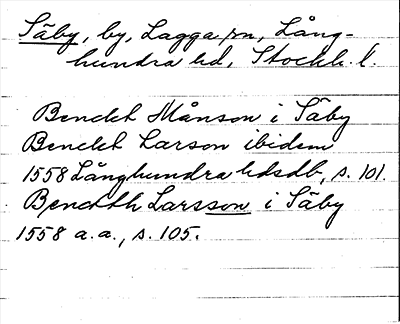 Säby, by, Lagga sn, Lång-
hundra hd, Stockh. l.
Bendct Månson i Säby
Bendct Larson ibidem
1558 Långhundra hdsdb, s. 101.
Bendcth Larsson i Säby
1558 a.a., s. 105.